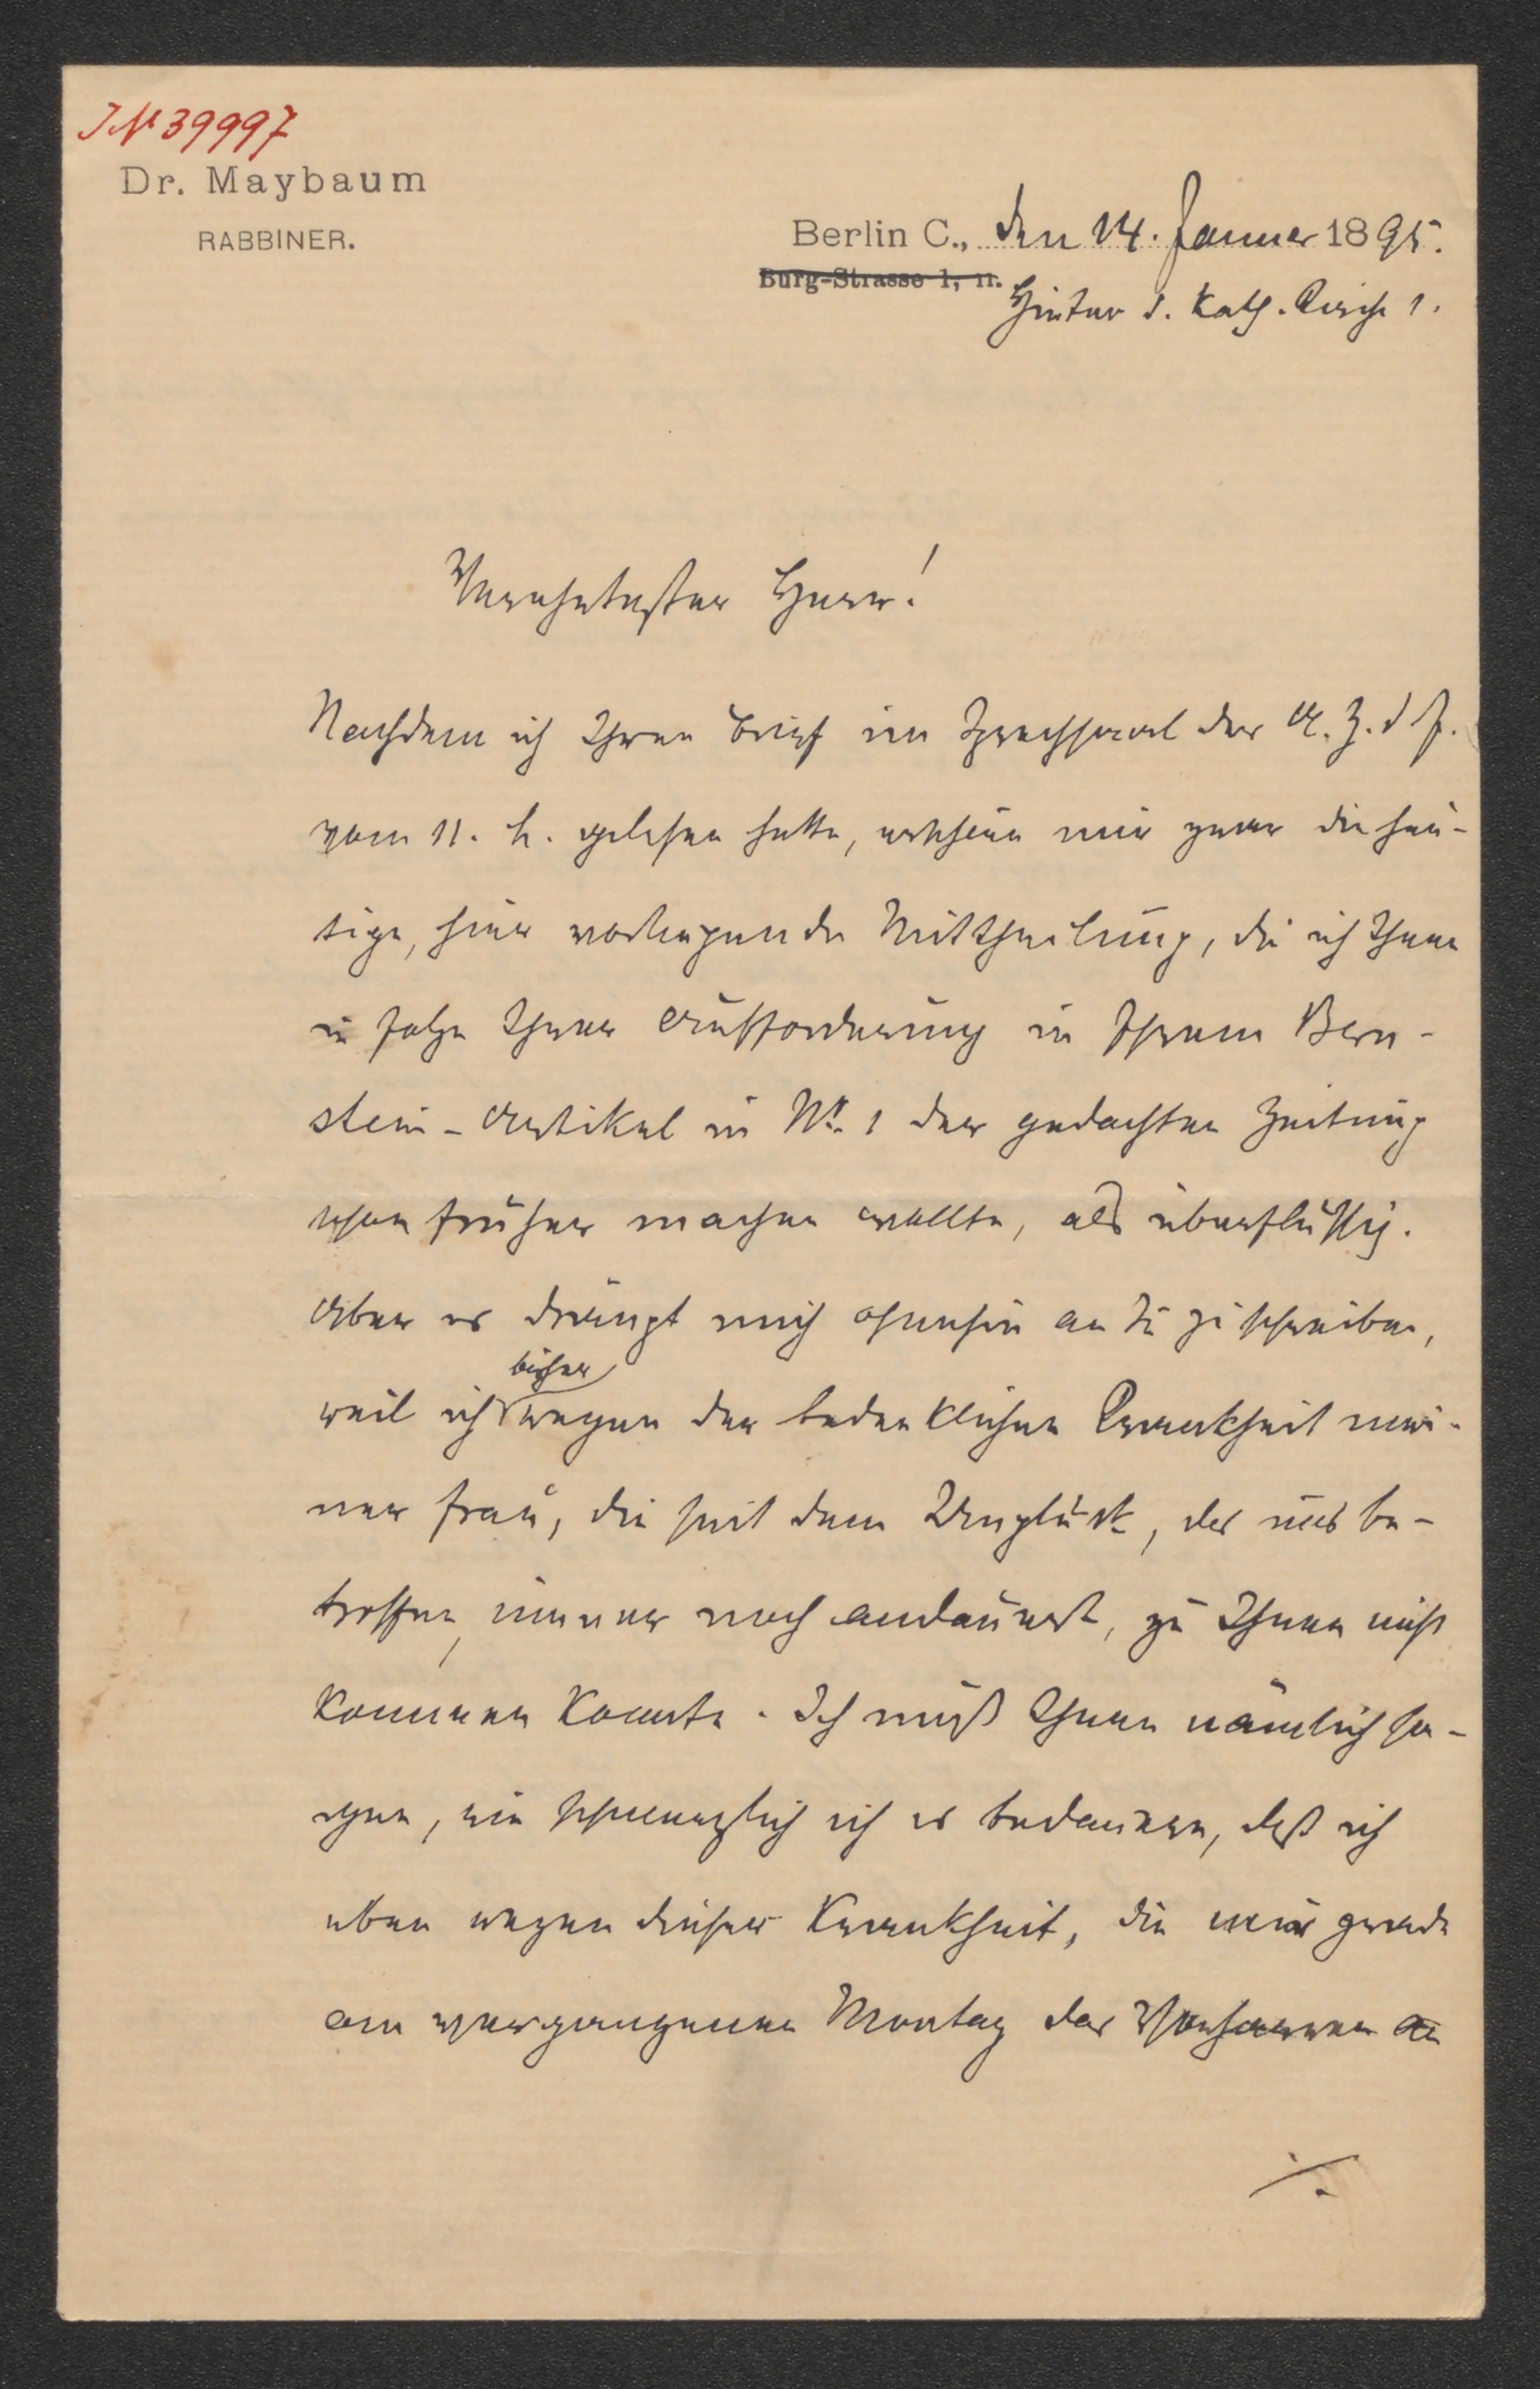 J.N. 39997
Dr. Maybaum
RABBINER.
Berlin C., den 14. Januar 1895.
Burg-Strasse 1, II.
Hinter d. kath. Kirche 1.
Verehrtester Herr!
Nachdem ich Ihren Brief im Sprechsaal der A. Z. d J.
vom 11. h. gelesen hatte, erschien mir zwar die heu-
tige, hier vorliegende Mittheilung, die ich Ihnen
in Folge Ihrer Aufforderung in Ihrem Bern-
stein-Artikel in No. 1 der gedachten Zeitung
schon früher machen wollte, als überflüssig.
Aber es drängt mich ohnehin an Sie zu schreiben,
bisher
weil ich wegen der bedenklichen Krankheit mei-
ner Frau, die seit dem Unglück, das uns be-
troffen, immer noch andauert, zu Ihnen nicht
kommen konnte. Ich muß Ihnen nämlich sa-
gen, wie schmerzlich ich es bedauere, daß ich
eben wegen dieser Krankheit, die mir gerade
am vergangenen Montag das Ausharren an
./.